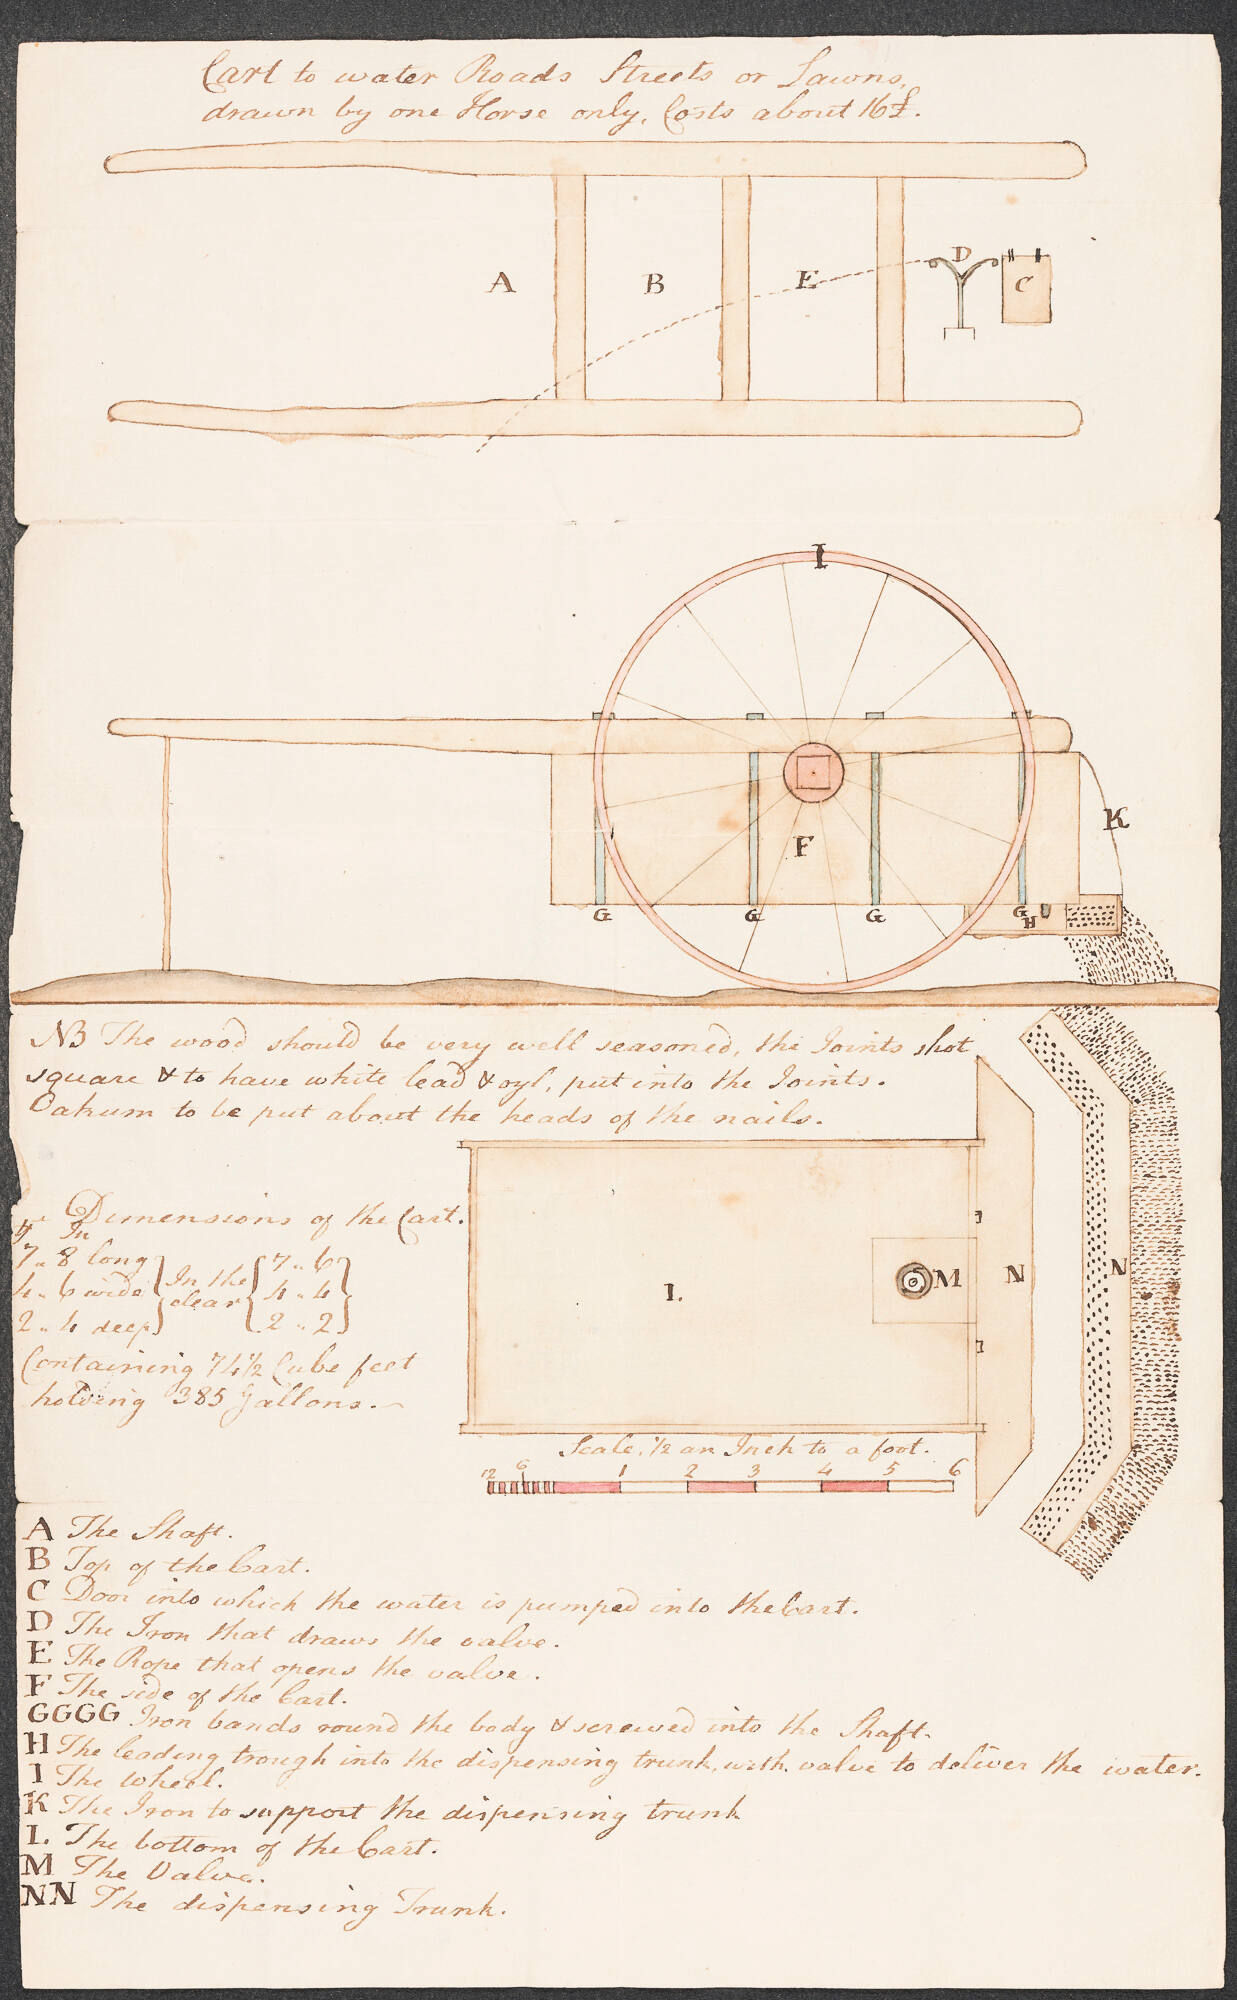 Cart to water Roads Streets or Lawns,
drawn by one Horse only, Costs about 16£.
A
B
E
D
C
I
K
F
G
G
G
G
H
NB The wood should be very well seasoned, the Joints shot
square & to have white lead & oyl, put into the Joints.
Oakum to be put about the heads of the nails.
Dimensions of the Cart.
In
7 .. 8 long
4 .. 6 wide
2 .. 4 deep
In the
clear
7 .. 6
4 .. 4
2 .. 2
Containing 74½ Cube feet
holding 385 Gallons.
L.
M
N
N
Scale, ½ an Inch to a foot.
12 6 1 2 3 4 5 6
A The Shaft.
B Top of the Cart.
C Door into which the water is pumped into the Cart.
D The Iron that draws the valve.
E The Rope that opens the valve.
F The side of the Cart.
GGGG Iron bands round the body & screwed into the Shaft.
H The leading trough into the dispensing trunk, with valve to deliver the water.
I The Wheel.
K The Iron to support the dispensing trunk
L. The bottom of the Cart.
M The Valve.
NN The dispensing Trunk.